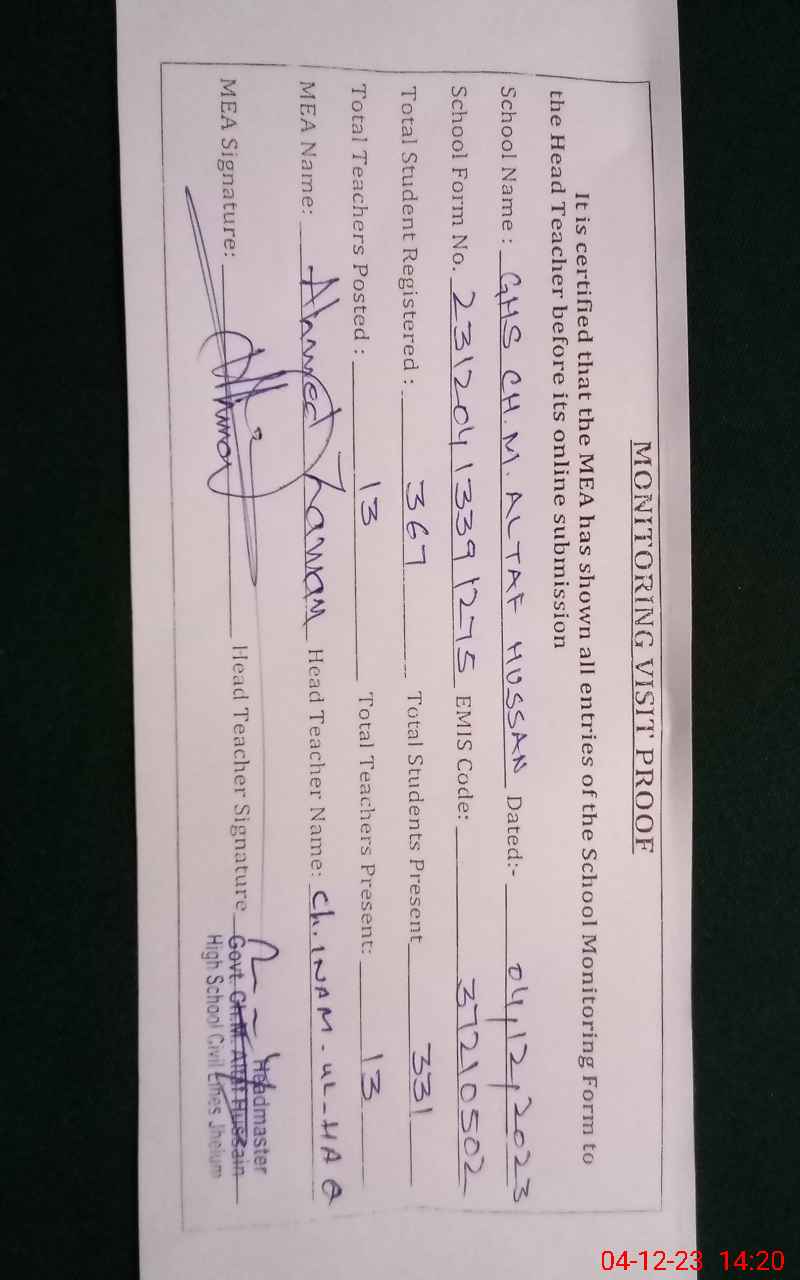 MONITORING VISIT PROOF
It is certified that the MEA has shown all entries of the School Monitoring Form to
the Head Teacher before its online submission
School Name : GHS CH.M. ALTAF HUSSAN Dated:- 04,12,2023
School Form No. 231204133391275 EMIS Code: 37210502
Total Student Registered : 367 Total Students Present 331
Total Teachers Posted : 13 Total Teachers Present: 13
MEA Name: Ahmed Zaman Head Teacher Name: Ch. INAM-UL-HAQ
MEA Signature: Head Teacher Signature
Headmaster
Govt. Ch.M. Altaf Hussain
High School Civil Lines Jhelum
04-12-23 14:20